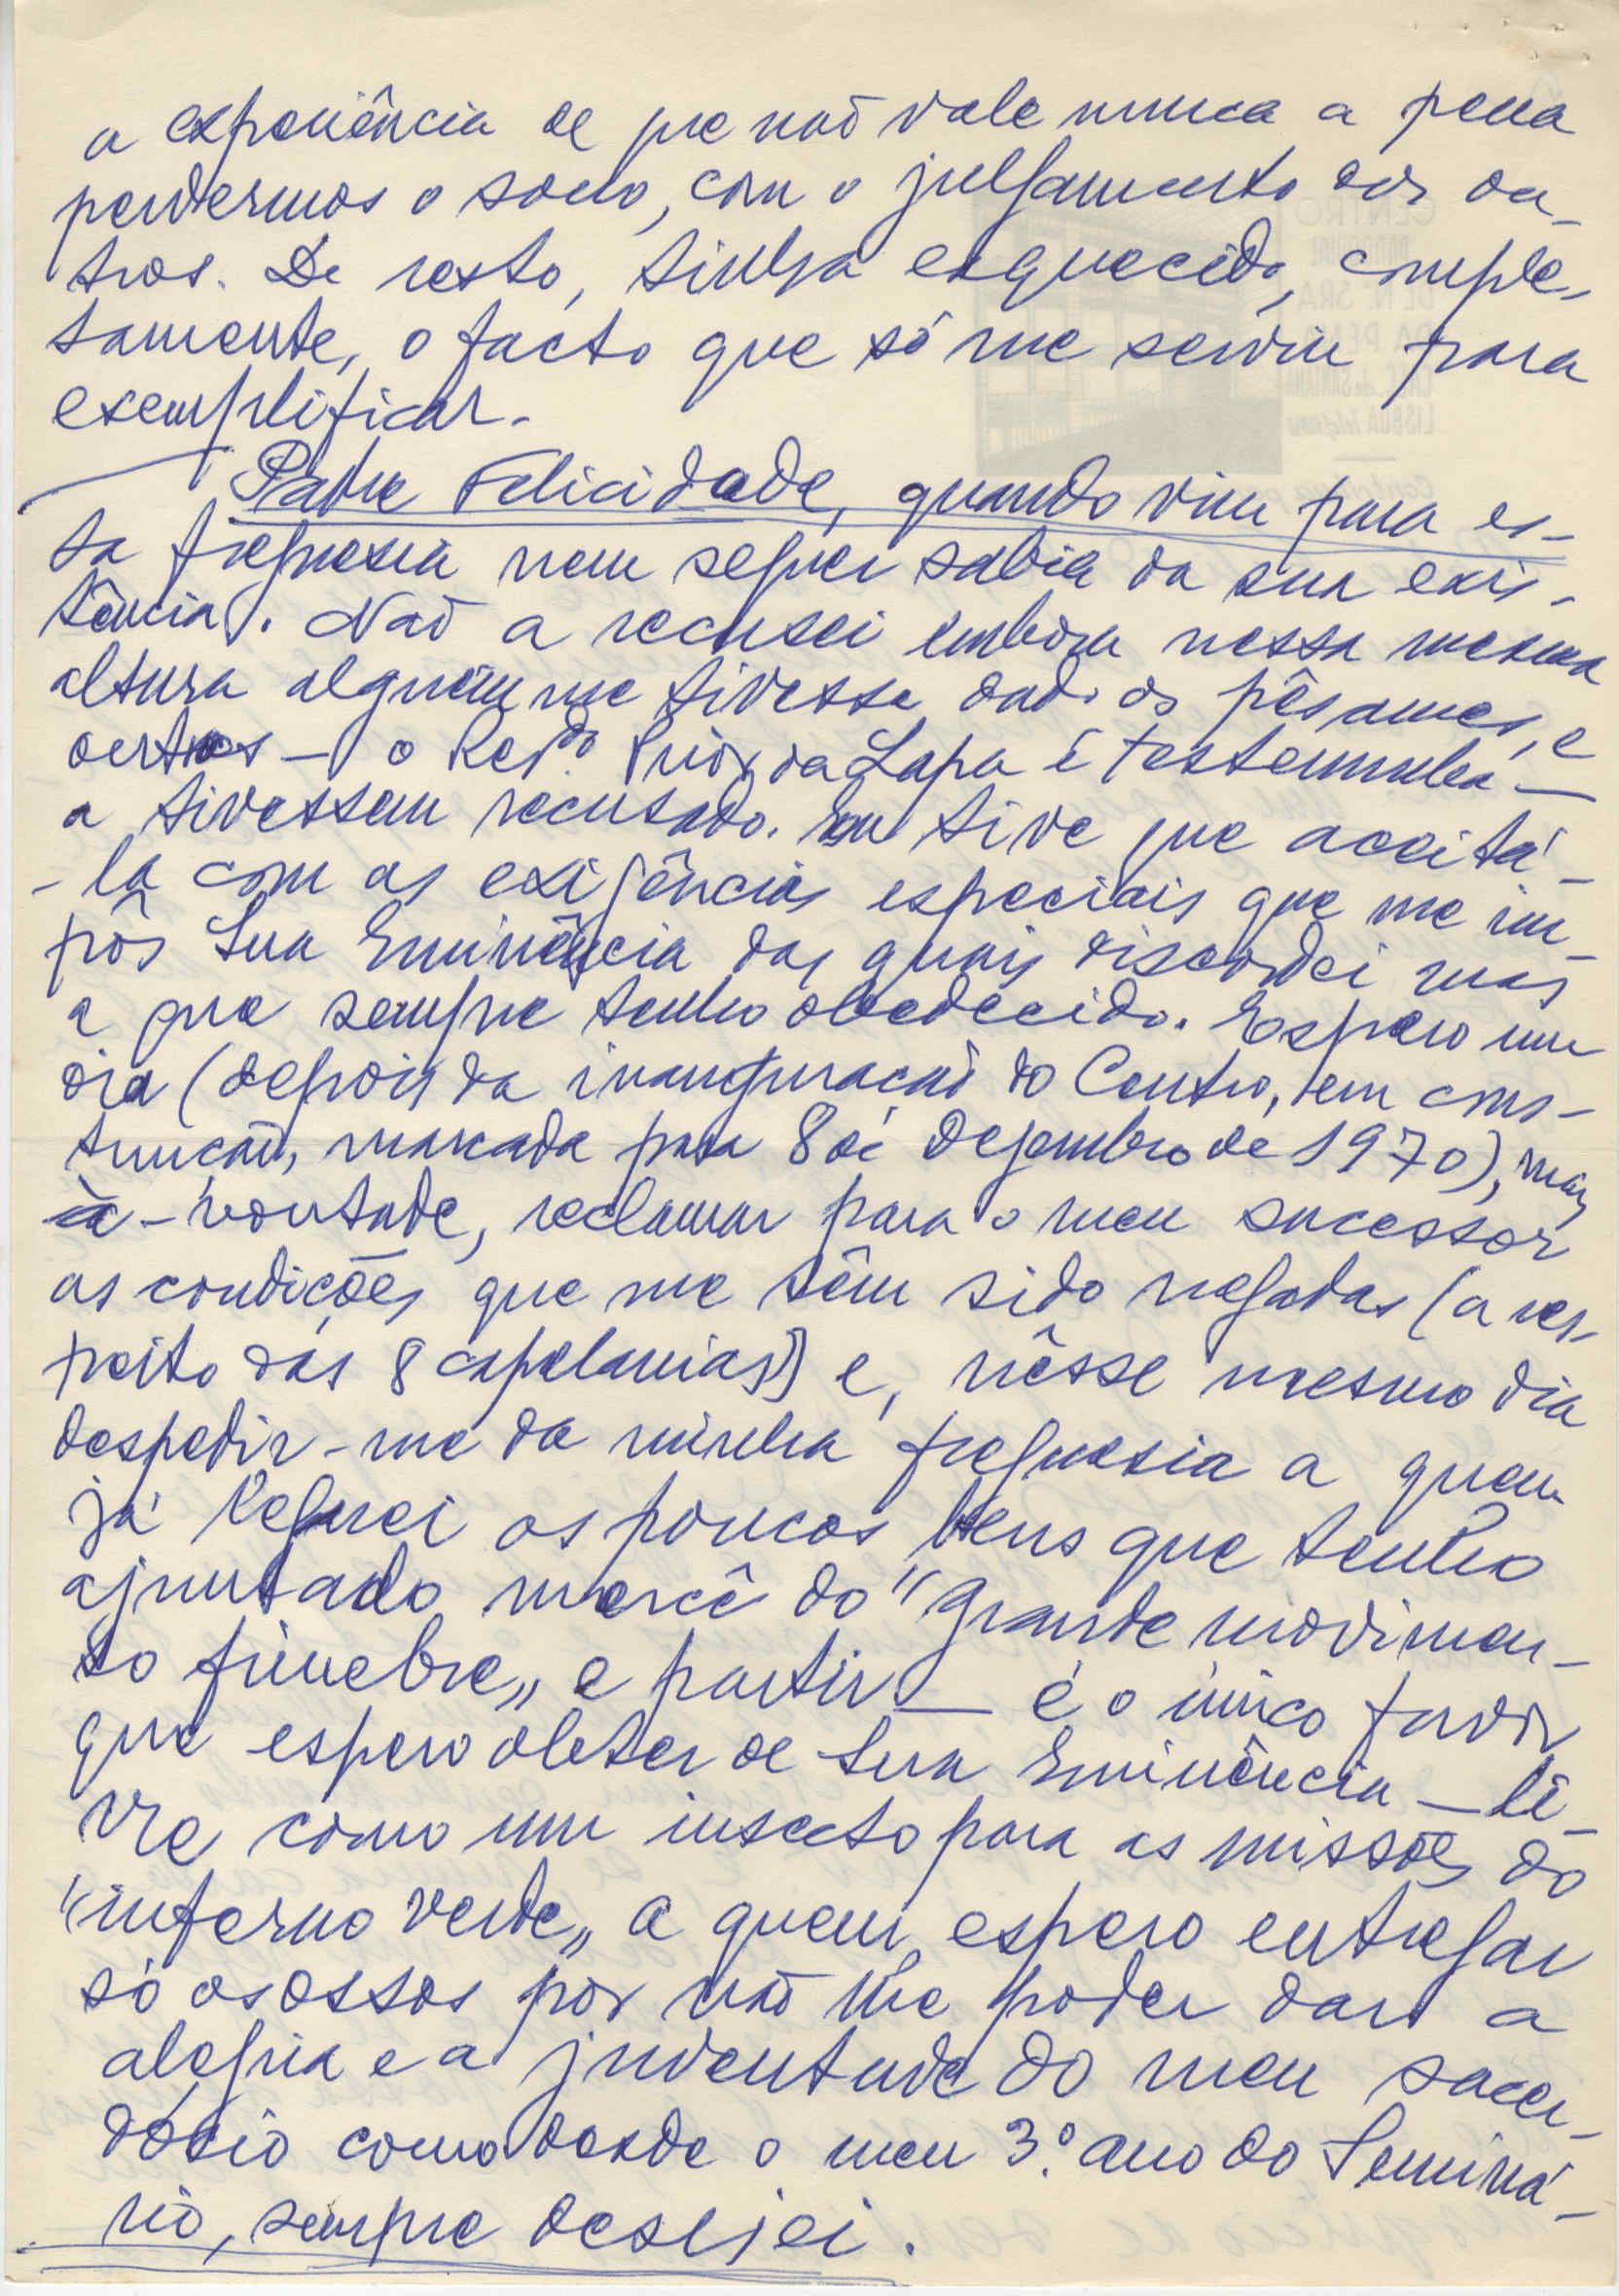 a experiência de que não vale nunca a pena
perdermos o sono, com o julgamento dos ou-
tros. De resto, tinha esquecido, comple-
tamente, o facto que só me serviu para
exemplificar.
Padre Felicidade, quando vim para es-
ta freguesia nem sequer sabia da sua exis-
tência. Não a recusei embora nessa mesma
altura alguém me tivesse dado os pêsames, e
outros — o Revdo. Prior da Lapa é testemunha —
a tivessem recusado. Eu tive que aceitá-
-la com as exigências especiais que me im-
pôs Sua Eminência das quais discordei mas
a que sempre tenho obedecido. Espero um
dia (depois da inauguração do Centro, em cons-
trução, marcada para 8 de Dezembro de 1970), mais
à-vontade, reclamar para o meu sucessor
as condições que me têm sido negadas (a res-
peito das 8 capelanias) e, nêsse mesmo dia
despedir-me da minha freguesia a quem
já leguei os poucos bens que tenho
ajuntado mercê do "grande movimen-
to fúnebre" e partir — é o único favor
que espero obter de Sua Eminência — li-
vre como um insecto para as missões do
"inferno verde" a quem espero entregar
só os ossos por não lhe poder dar a
alegria e a juventude do meu sacer-
dócio como desde o meu 3.º ano do Seminá-
rio, sempre desejei.
CENTRO
PAROQUIAL
DE N. SRA
DA PENA
LISBOA